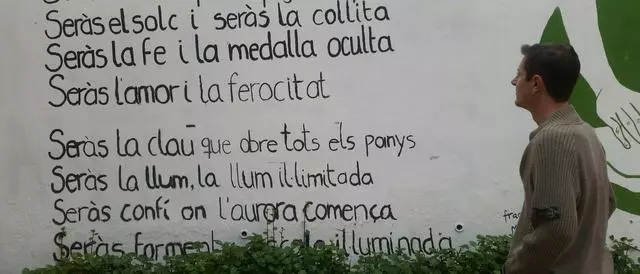 Seràs el solc i seràs la collita
Seràs la fe i la medalla oculta
Seràs l'amor i la ferocitat
Seràs la clau que obre tots els panys
Seràs la llum, la llum il·limitada
Seràs confí on l'aurora comença
Seràs forment il·luminada